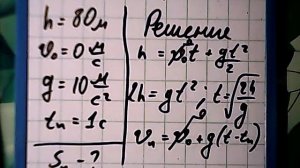 h = 80м
v₀ = 0 м/с
g = 10 м/с²
tп = 1с
Sп - ?
Решение
h = v₀t + gt²/2
2h = gt² ; t = √(2h/g)
vп = v₀ + g(t - tп)